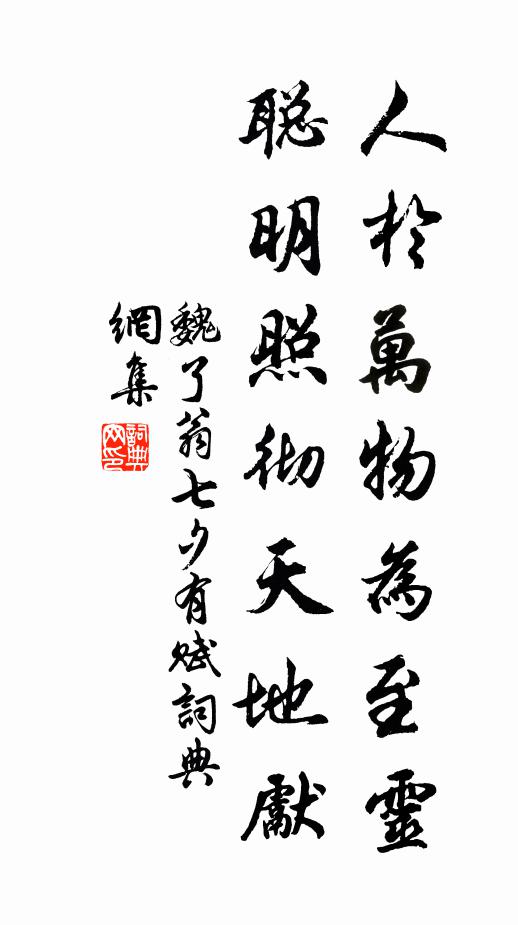 人於萬物為至靈
聰明照徹天地獻
魏了翁七夕有賦詞典
網集
詞典
网印